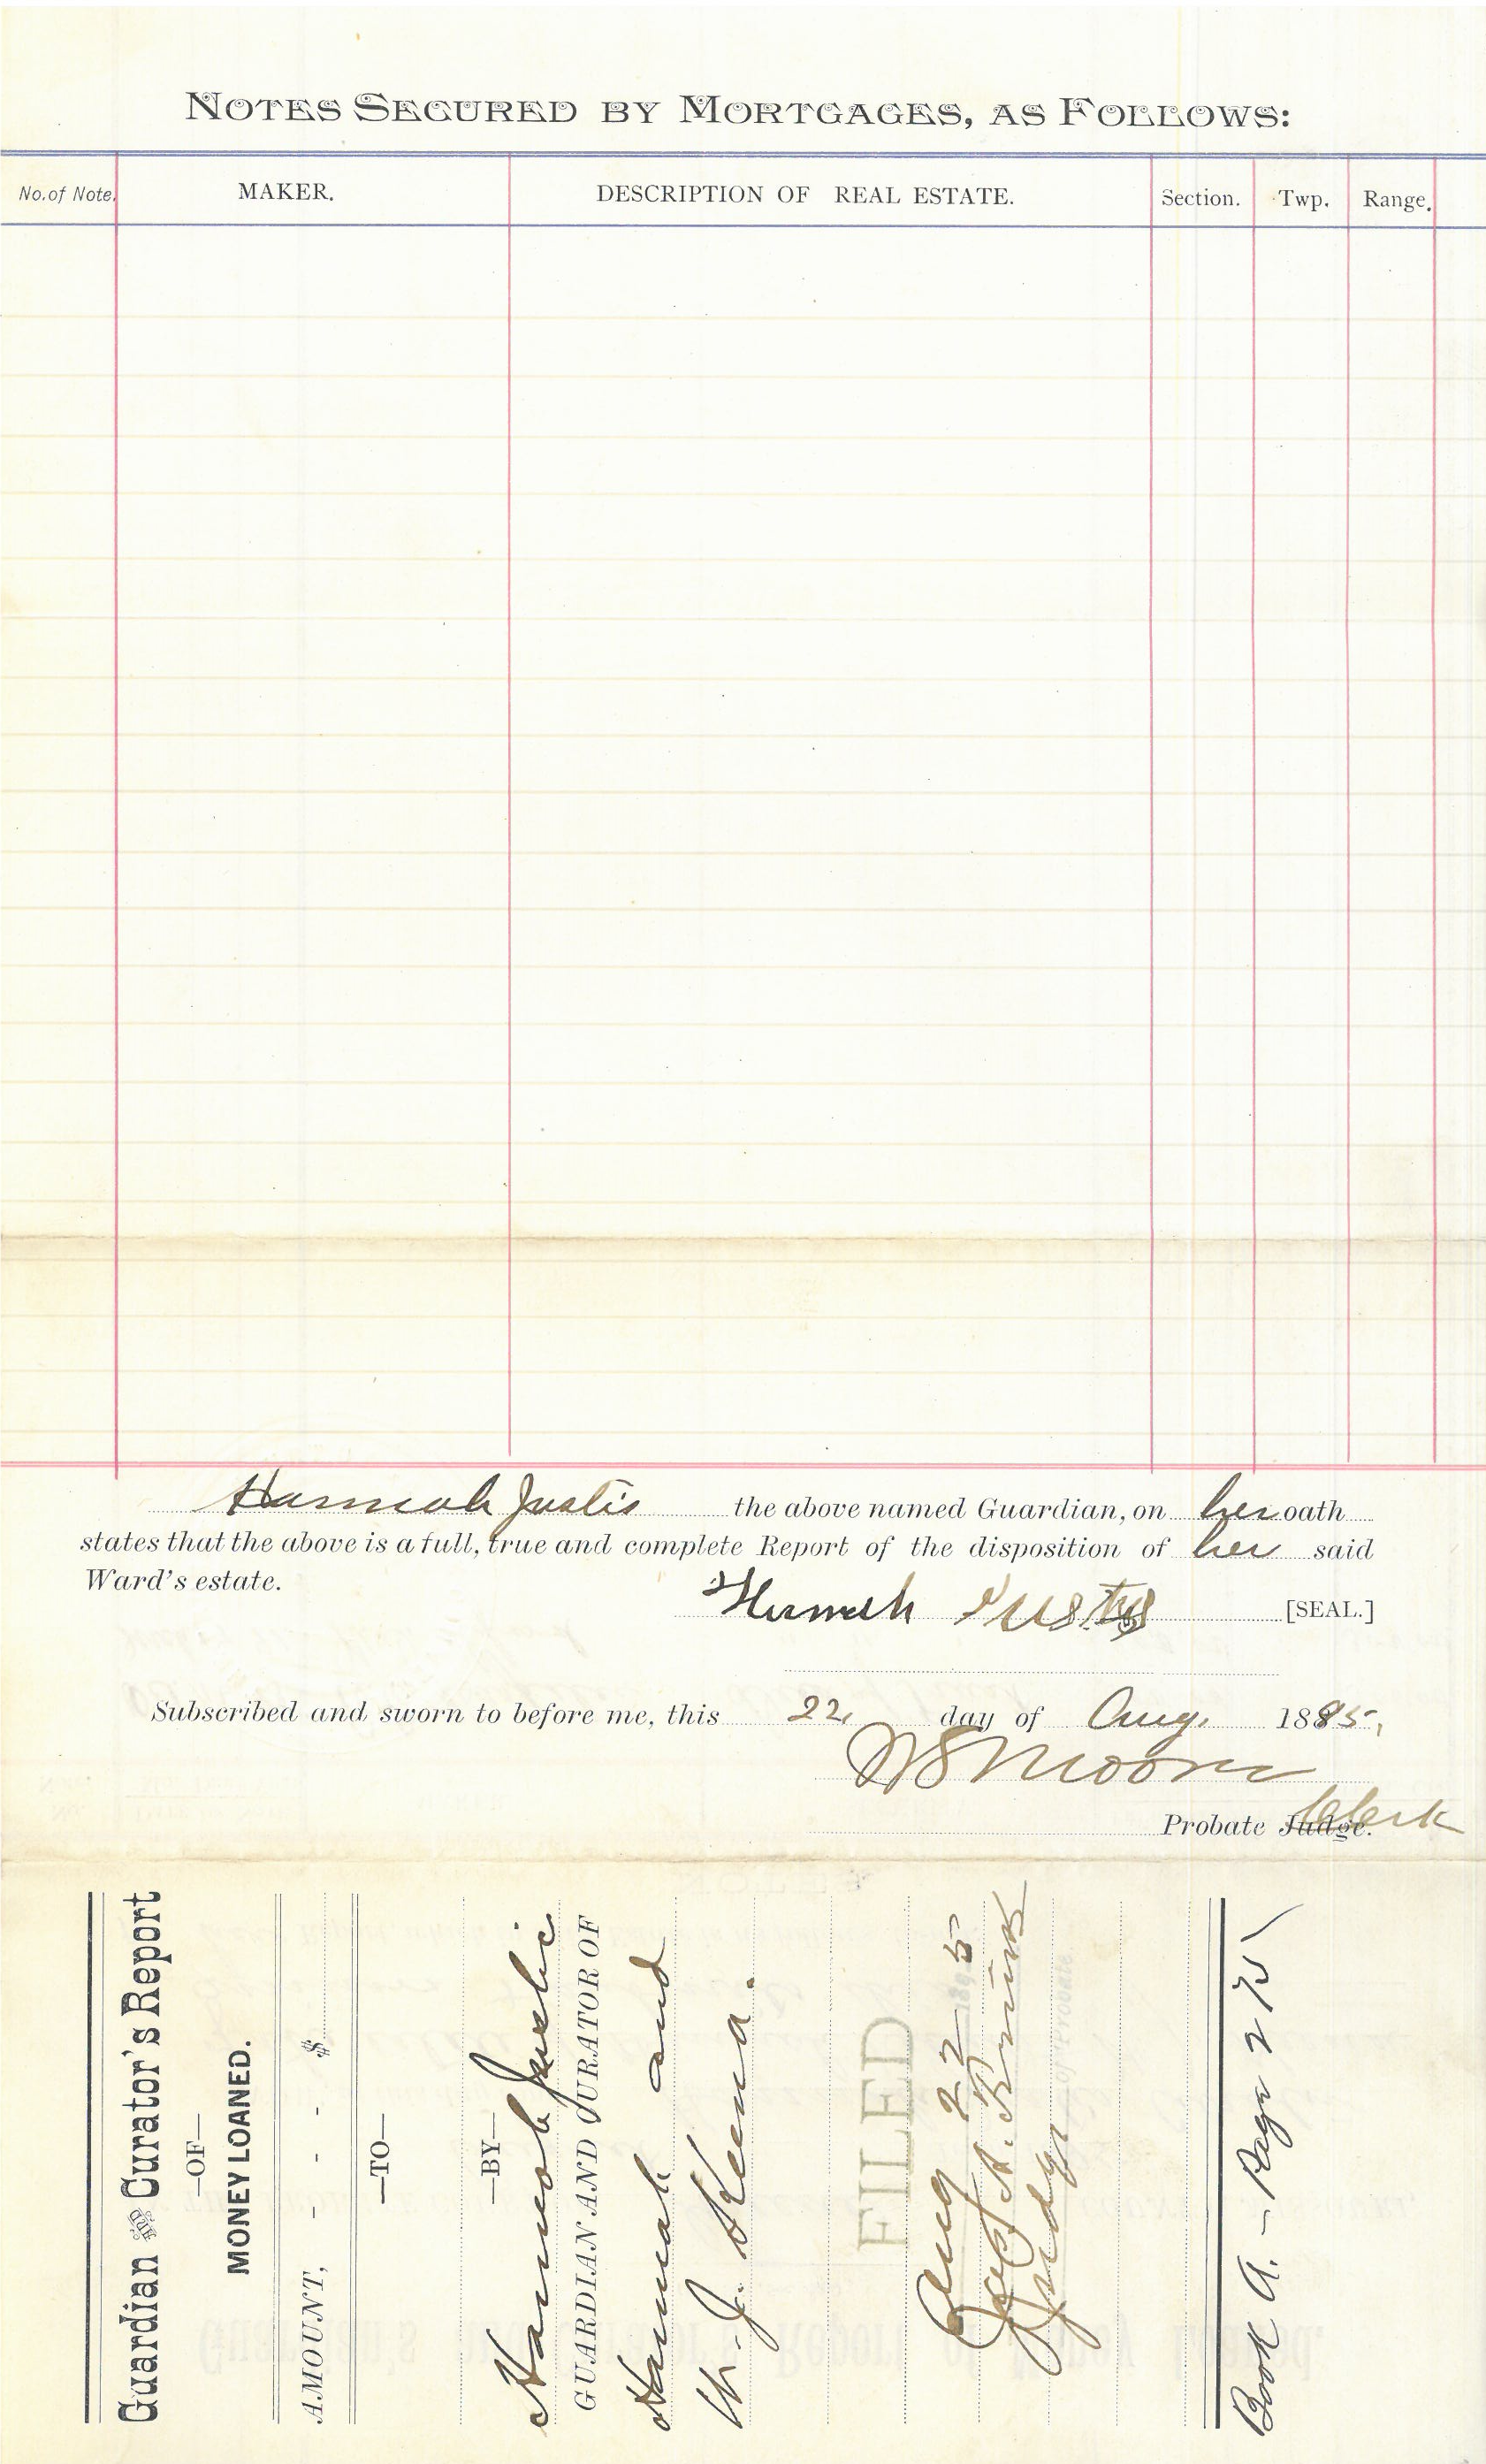 NOTES SECURED BY MORTGAGES, AS FOLLOWS:
No. of Note. MAKER. DESCRIPTION OF REAL ESTATE. Section. Twp. Range.
Hannah Justis the above named Guardian, on her oath
states that the above is a full, true and complete Report of the disposition of her said
Ward's estate.
Hannah Justis [SEAL.]
Subscribed and sworn to before me, this 22, day of Aug. 1895,
WS Moore
Probate Judge. Clerk
Guardian and Curator's Report
—OF—
MONEY LOANED.
AMOUNT, - - - $
—TO—
—BY—
Hannah Justis
GUARDIAN AND CURATOR OF
Hannah and
W. J. Keena.
FILED
Aug 22 1895
Judge of Probate
Book A. – Page